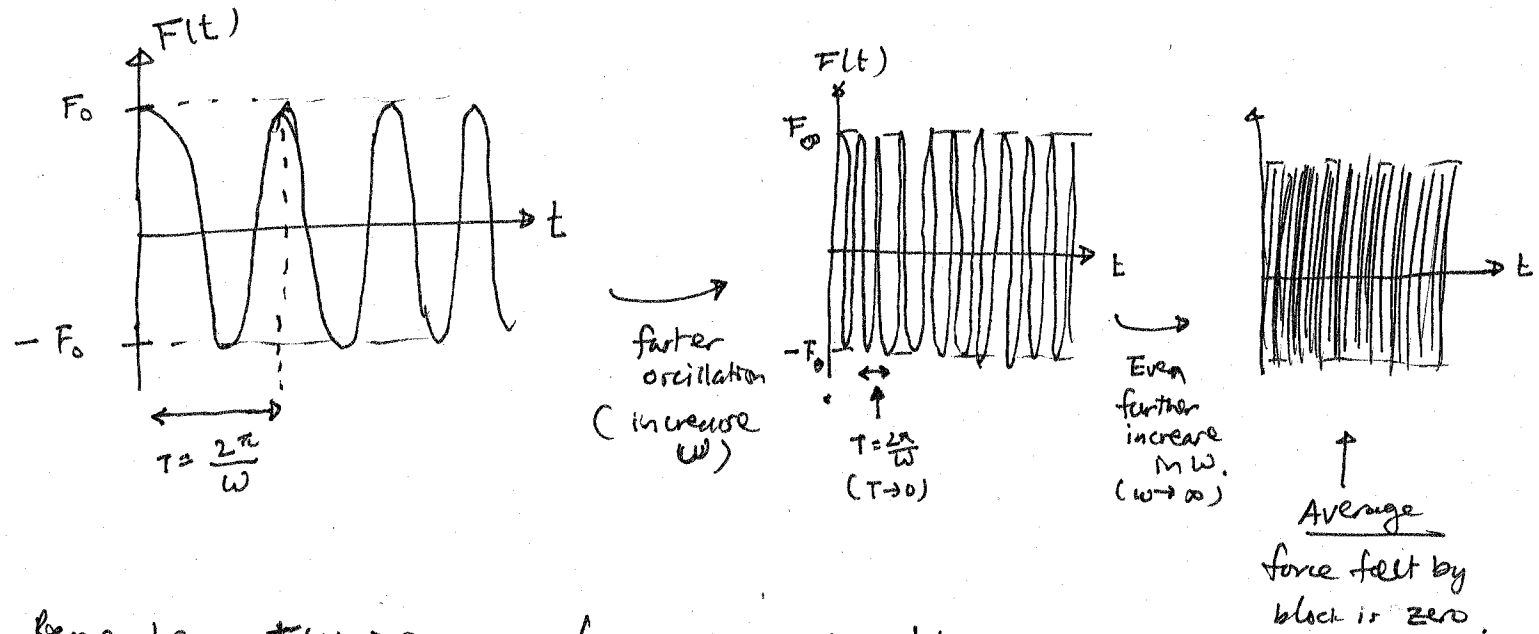 F(t)
F₀
t
- F₀
T = 2π/ω
faster
oscillation
(increase
ω)
F(t)
F₀
t
-F₀
T = 2π/ω
(T→0)
Even
further
increase
in ω.
(ω→∞)
t
Average
force felt by
block is zero.